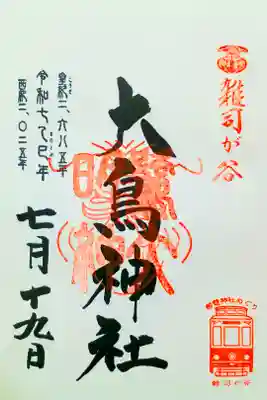 雑司が谷
大鳥神社
皇紀二、六八五年
令和七乙巳年
西暦二、〇二五年
七月十九日
都電神社めぐり
雑司が谷